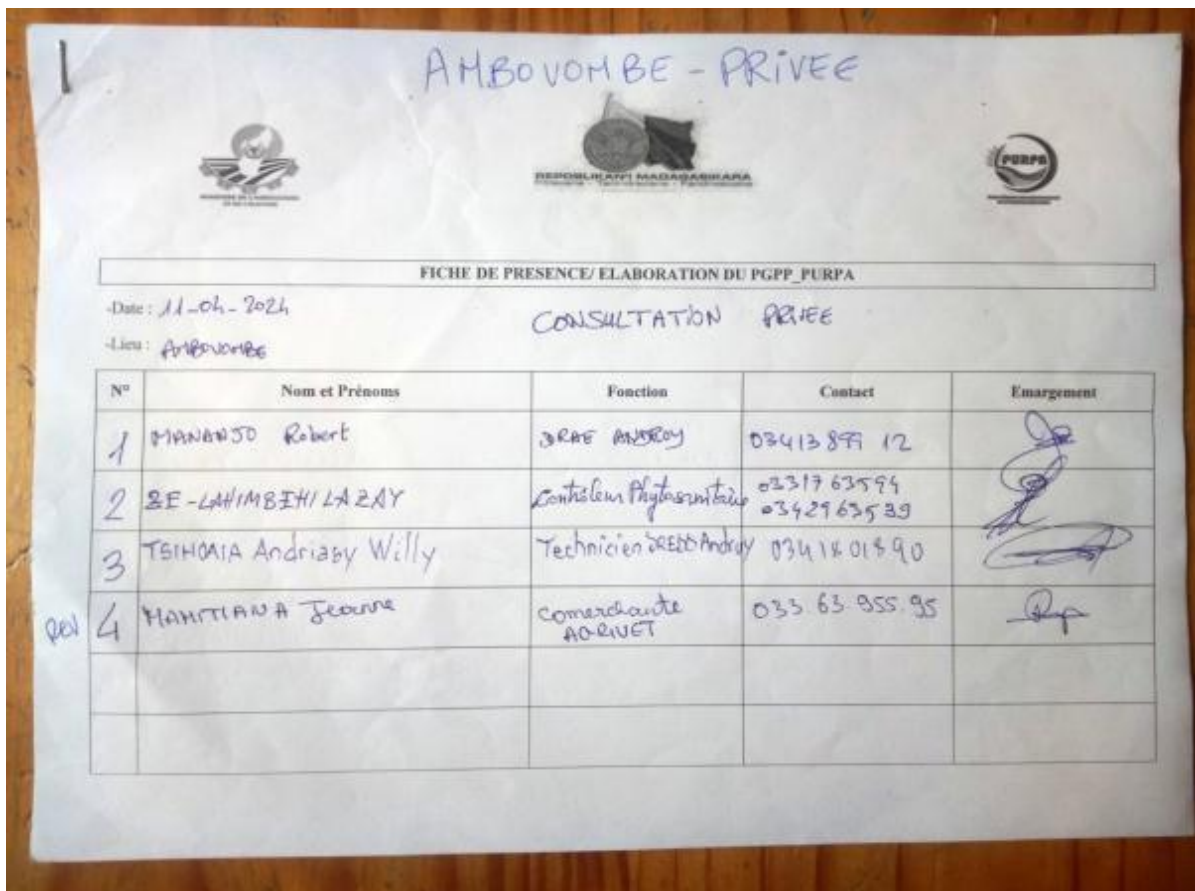 AMBOVOMBE - PRIVEE
REPOBLIKAN'I MADAGASIKARA
Fitiavana - Tanindrazana - Fandrosoana
PURPA
FICHE DE PRESENCE/ ELABORATION DU PGPP_PURPA
-Date : 11-04-2024
CONSULTATION PRIVEE
-Lieu : AMBOVOMBE
N° Nom et Prénoms Fonction Contact Emargement
1 MANANJO Robert DRAE ANDROY 03413 899 12
2 ZE-LAHIMBEHILAZAY Contrôleur Phytosanitaire 0331763594
0342963539
3 Andriasy Willy Technicien DREDD Androy 0341801890
REV 4 MAHITIANA Jeanne Comerchante 033.63.955.95
AGRIVET